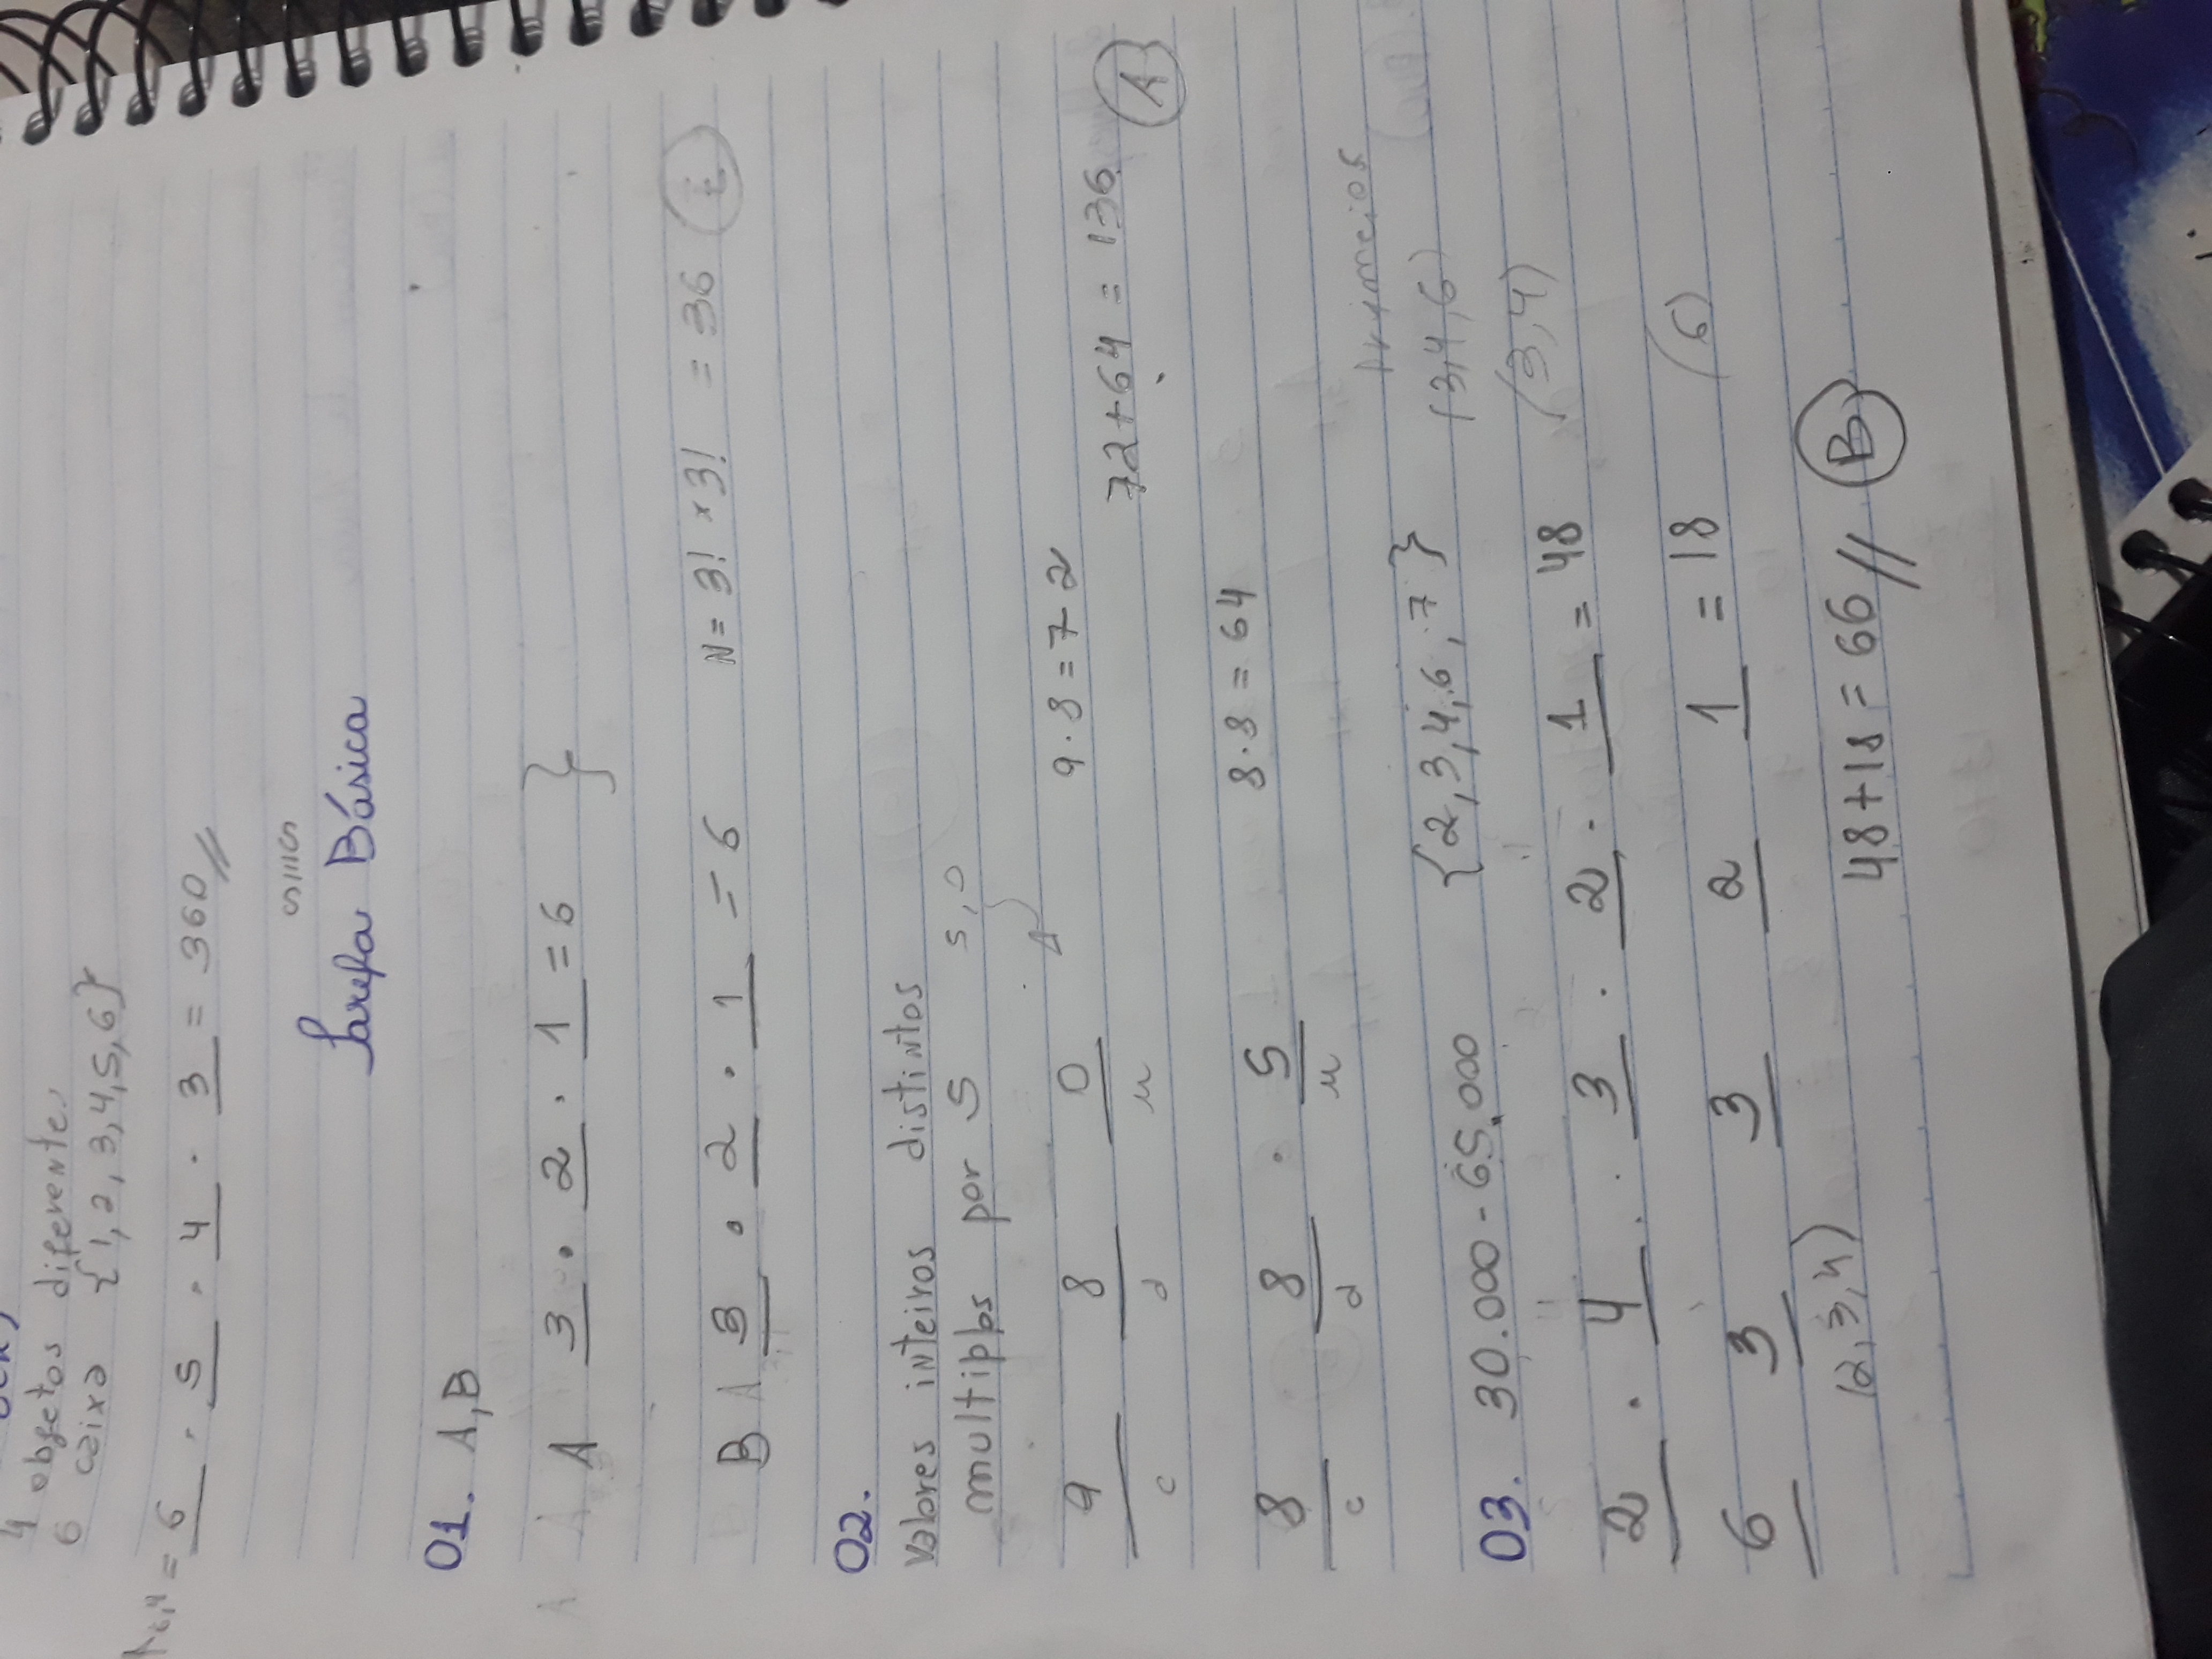 4 objetos diferentes
6 caixa {1,2,3,4,5,6}
A6,4 = 6 . 5 . 4 . 3 = 360//
Tarefa Básica
01. A,B
A 3 . 2 . 1 = 6 }
B A 3 . 2 . 1 = 6 N = 3! x 3! = 36 E
02.
valores inteiros distintos
multiplos por 5 5,0
9 8 0 9.8 = 72
c d u 72+64 = 136 A
8 8 . 5 8.8 = 64
c d u
Primeios
03. 30.000 - 65.000 {2,3,4,6,7} (3,4,6)
2 . 4 . 3 . 2 . 1 = 48 (3,4)
6 3 3 2 1 = 18 (6)
(2,3,4)
48+18 = 66// B